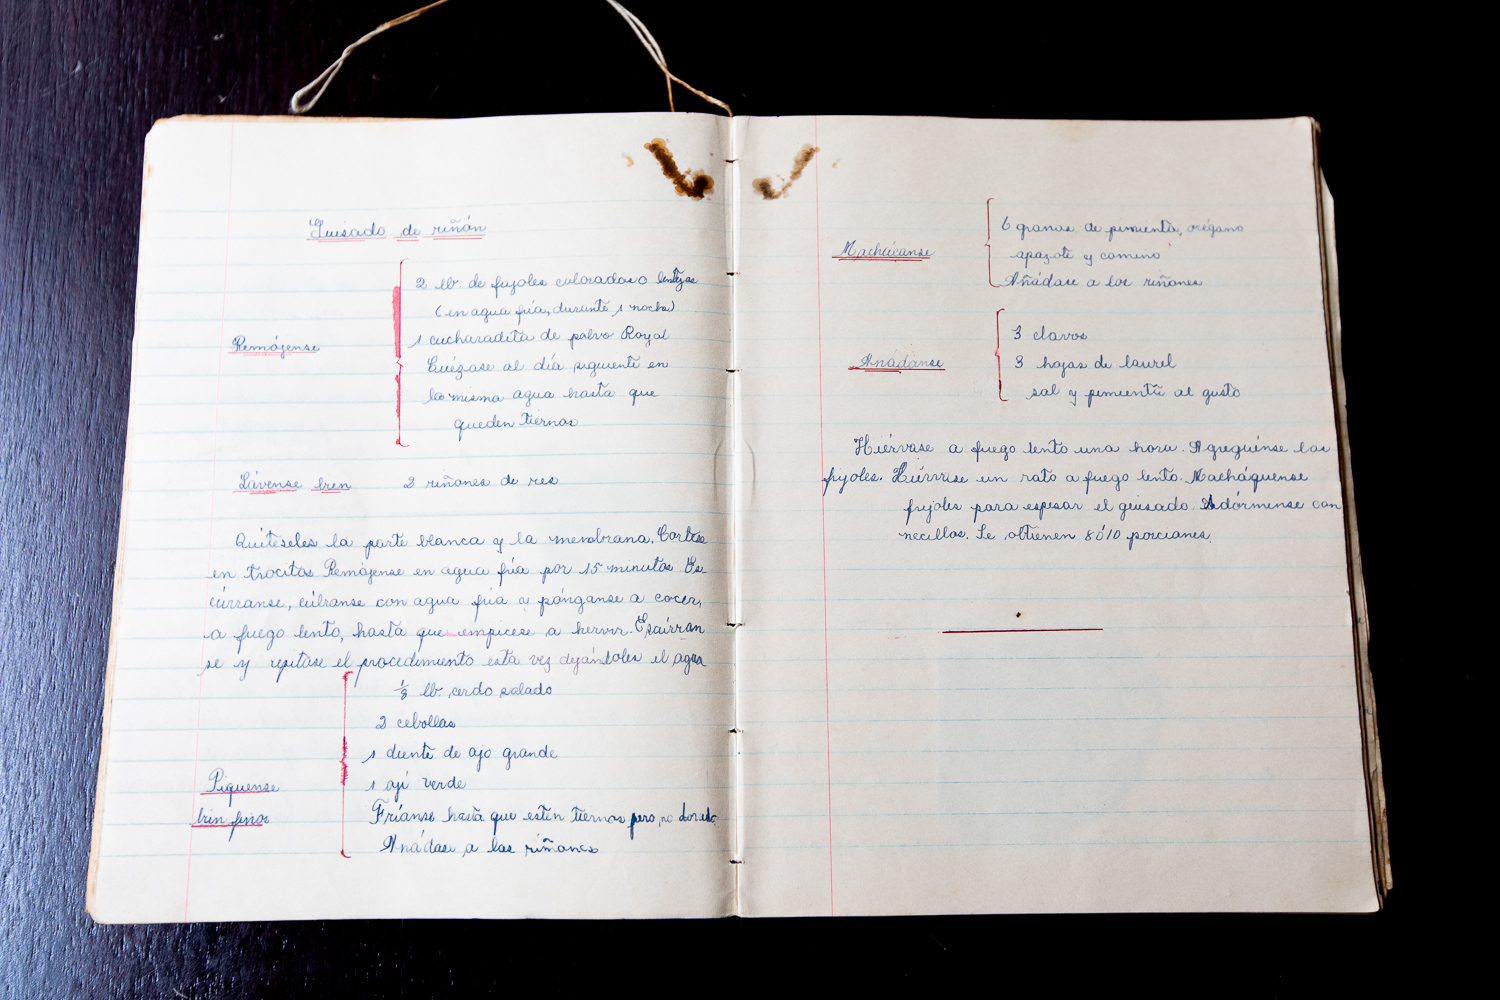 Guisado de riñón
2 lb. de frijoles colorados o lentejas
(en agua fría, durante 1 noche)
Remójense
1 cucharadita de polvo Royal
Cuézase al día siguiente en
la misma agua hasta que
queden tiernos
Lávense bien 2 riñones de res
Quíteseles la parte blanca y la membrana. Córtese
en trocitos Remójense en agua fría por 15 minutos Es-
cúrranse, cúbranse con agua fría y pónganse a cocer,
a fuego lento, hasta que empicese a hervir. Escúrran
se y repítase el procedimiento esta vez dejándoles el agua
1/8 lb. cerdo salado
2 cebollas
1 diente de ajo grande
Píquense
1 ají verde
bien finos
Fríanse hasta que estén tiernos pero, no dorados
Añádase a los riñones
6 granos de pimienta, orégano
Machúcanse
apazote y comino
Añádase a los riñones
3 clavos
Anádanse
3 hojas de laurel
sal y pimienta al gusto
Hiérvase a fuego lento una hora. Agreguénse los
frijoles. Hiérvase un rato a fuego lento. Macháquense
frijoles para espesar el guisado. Adórnense con
necillos. Se obtienen 8ó10 porciones.